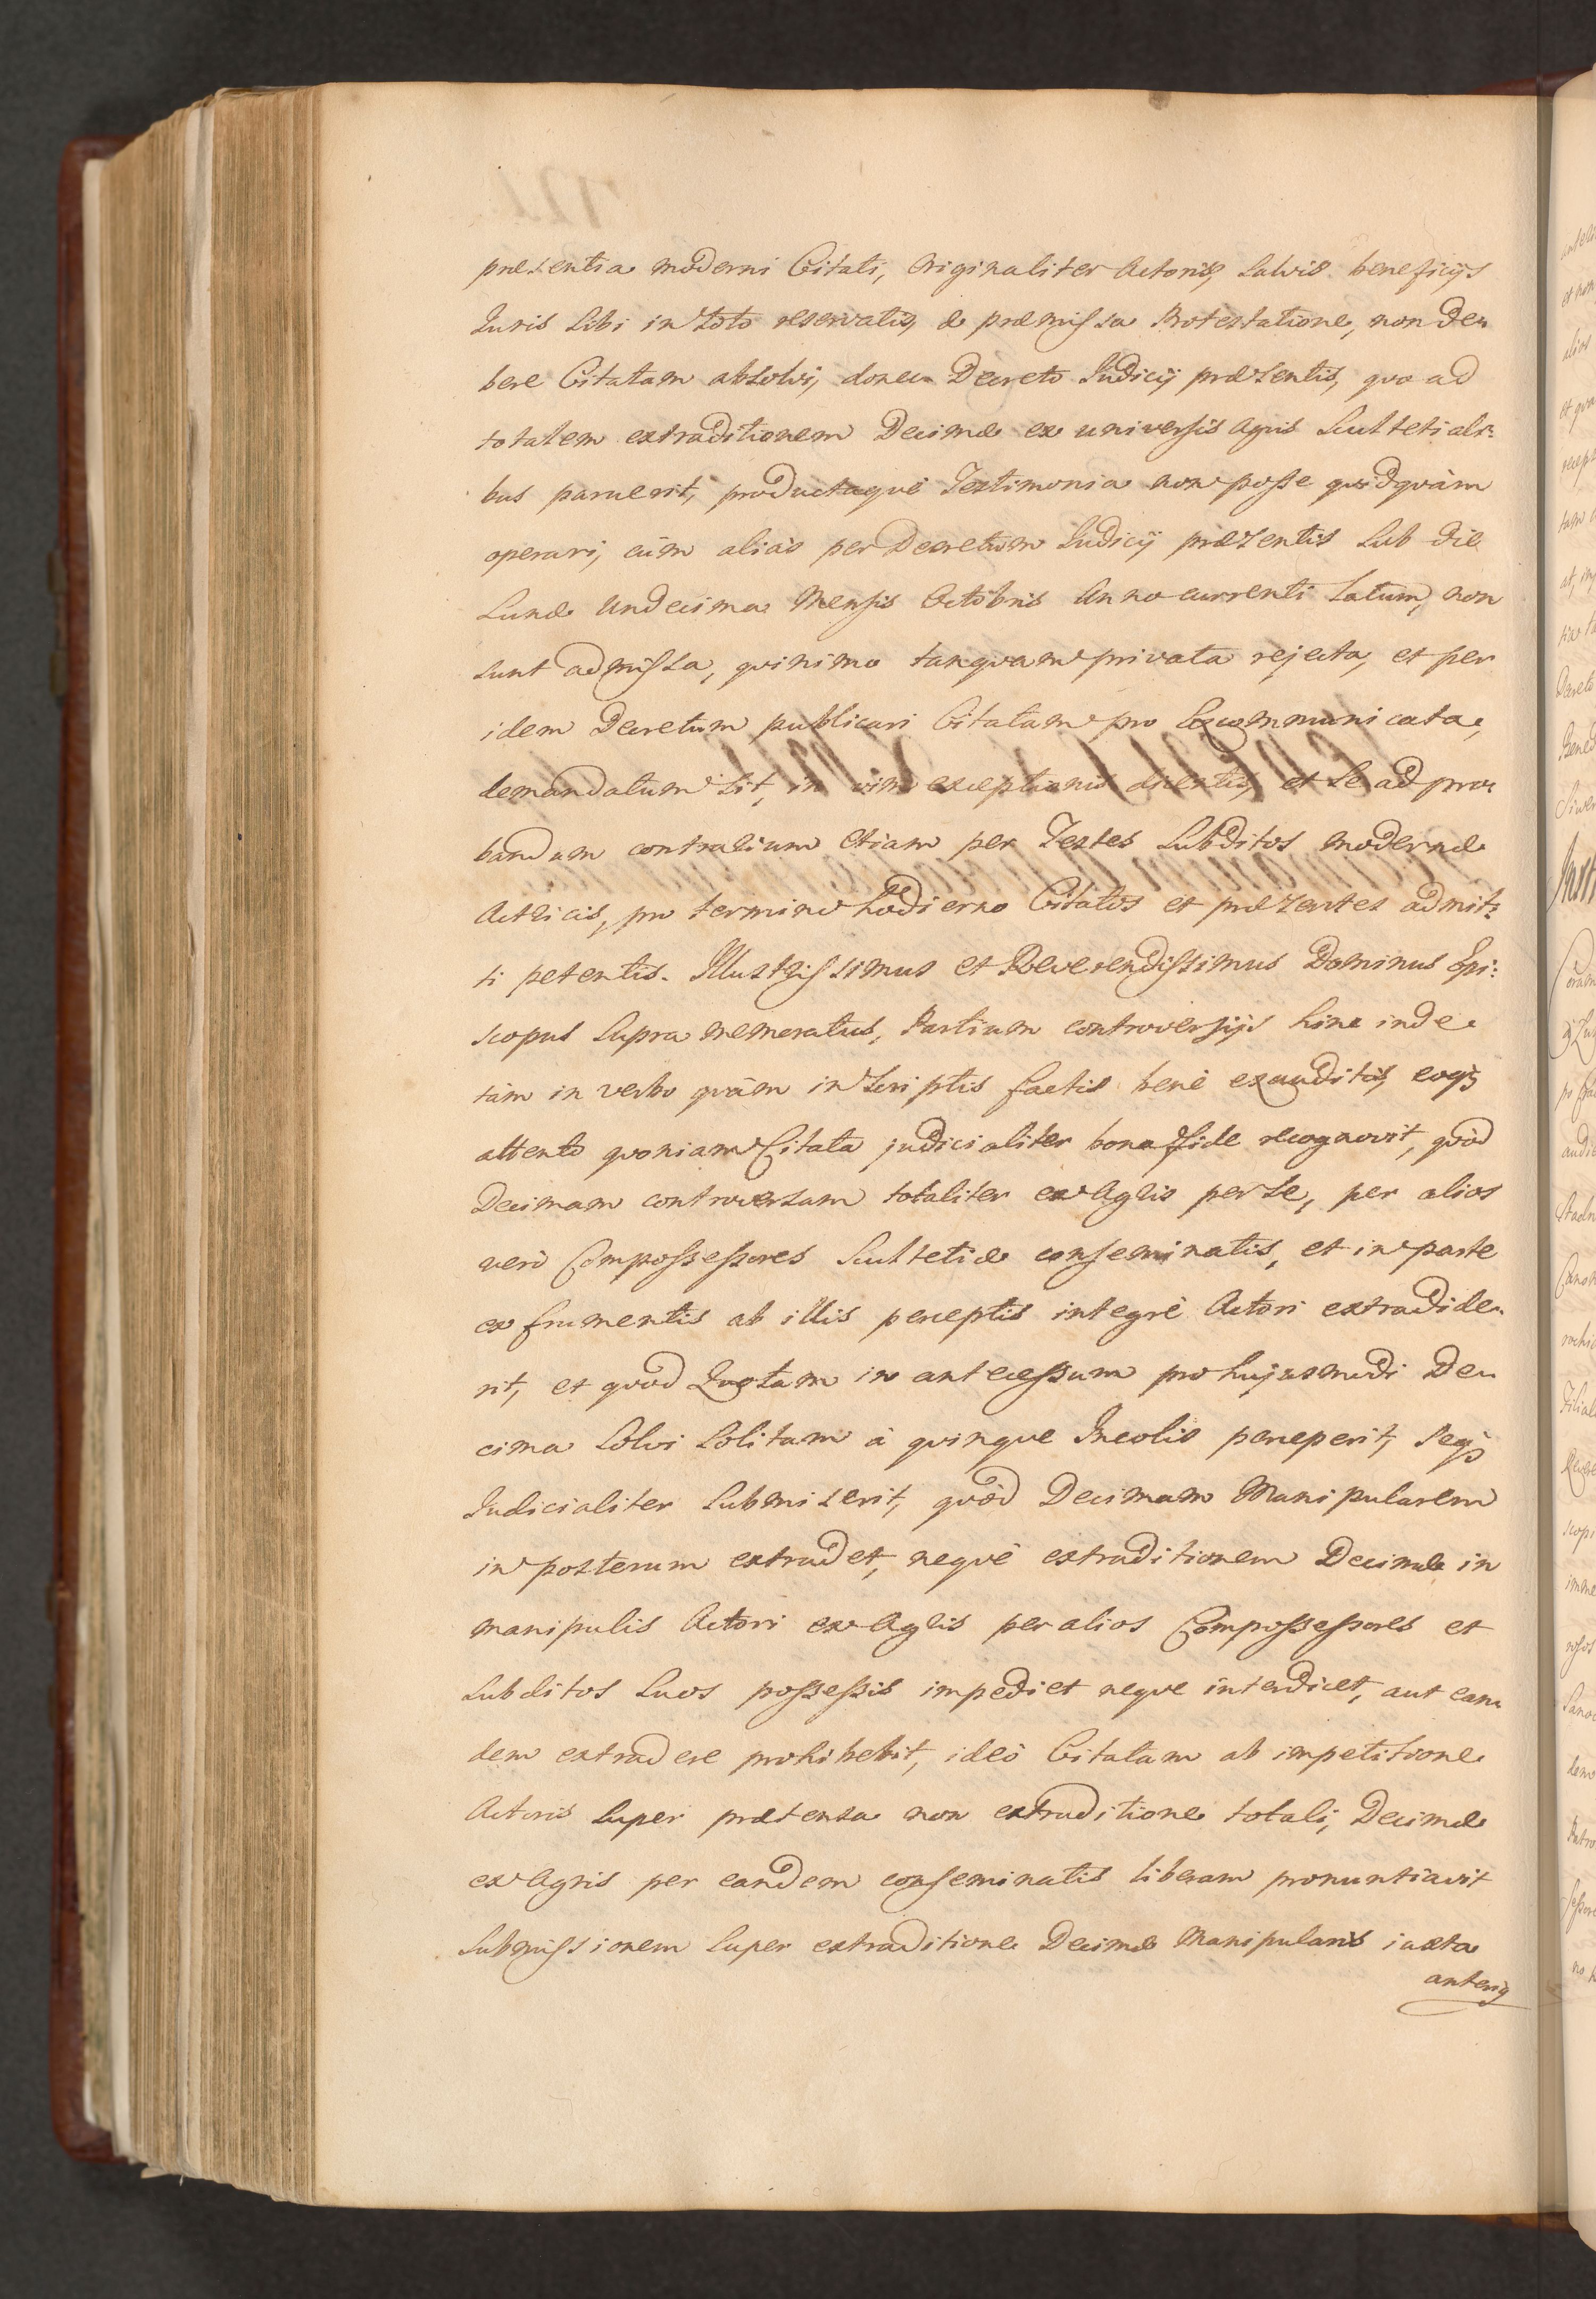 præsentia moderni Citati, originaliter Actoris, salvis beneficijs
Iuris sibi in toto reservatis, & præmissa Protestatione, non de„
bere Citatam absolvi, donec Decreto Iudicij præsentis, quo ad
totalem extraditionem Decimæ ex universis Agris Scultetiali„
bus paruerit, productaquè Testimonia non posse quidquàm
operari, cùm aliàs per Decretum Iudicij præsentis sub die
Lunæ Undecima Mensis Octobris Anno currenti latum, non
sunt admissa, quinimo tanquam privata rejecta, et per
idem Decretum publicari Citatam pro Excommunicata,
demandatum sit, in vim exceptionis dicentis, et se ad pro„
bandum contrarium etiam per Testes subditos modernæ
Actricis, pro termino hodierno Citatos et præsentes admit„
ti petentis. Illustrissimus et Reverendissimus Dominus Epi„
scopus supra memoratus, Partium controversijs hinc inde
tàm in verbo quàm in scriptis factis benè exauditis, eoq3
attento quoniam Citata judicialiter bona fide recognovit, quòd
Decimam controversam totaliter ex Agris per se, per alios
verò Compossessores Scultetiæ conseminatis, et in parte
ex frumentis ab illis perceptis integrè Actori extradide„
rit, et quòd Quotam in antecessum pro hujusmodi De„
cima solvi solitam à quinque Incolis perceperit, seq3
Iudicialiter submiserit, quòd Decimam Manipularem
in posterum extradet, nequè extraditionem Decimæ in
manipulis Actori ex Agris per alios Compossessores et
subditos suos possessis impediet neque interdicet, aut ean„
dem extradere prohibebit, ideò Citatam ab impetitione
Actoris super prætensa non extraditione totali, Decimæ
ex Agris per eandem conseminatis liberam pronuntiavit
submissionem super extraditione Decimæ Manipularis iuxta
anterio